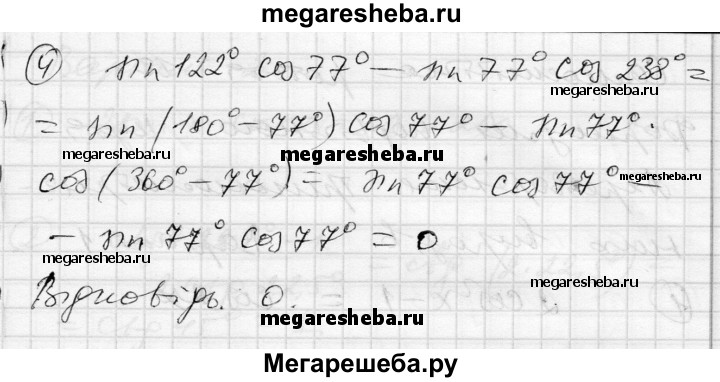 megaresheba.ru
4) sin 122° cos 77° − sin 77° cos 238° =
megaresheba.ru
= sin (180° − 77°) cos 77° − sin 77° ·
megaresheba.ru megaresheba.ru
cos (360° − 77°) = sin 77° cos 77° −
megaresheba.ru
− sin 77° cos 77° = 0
megaresheba.ru
Відповідь. 0.
megaresheba.ru
megaresheba.ru
Мегарешеба.ру